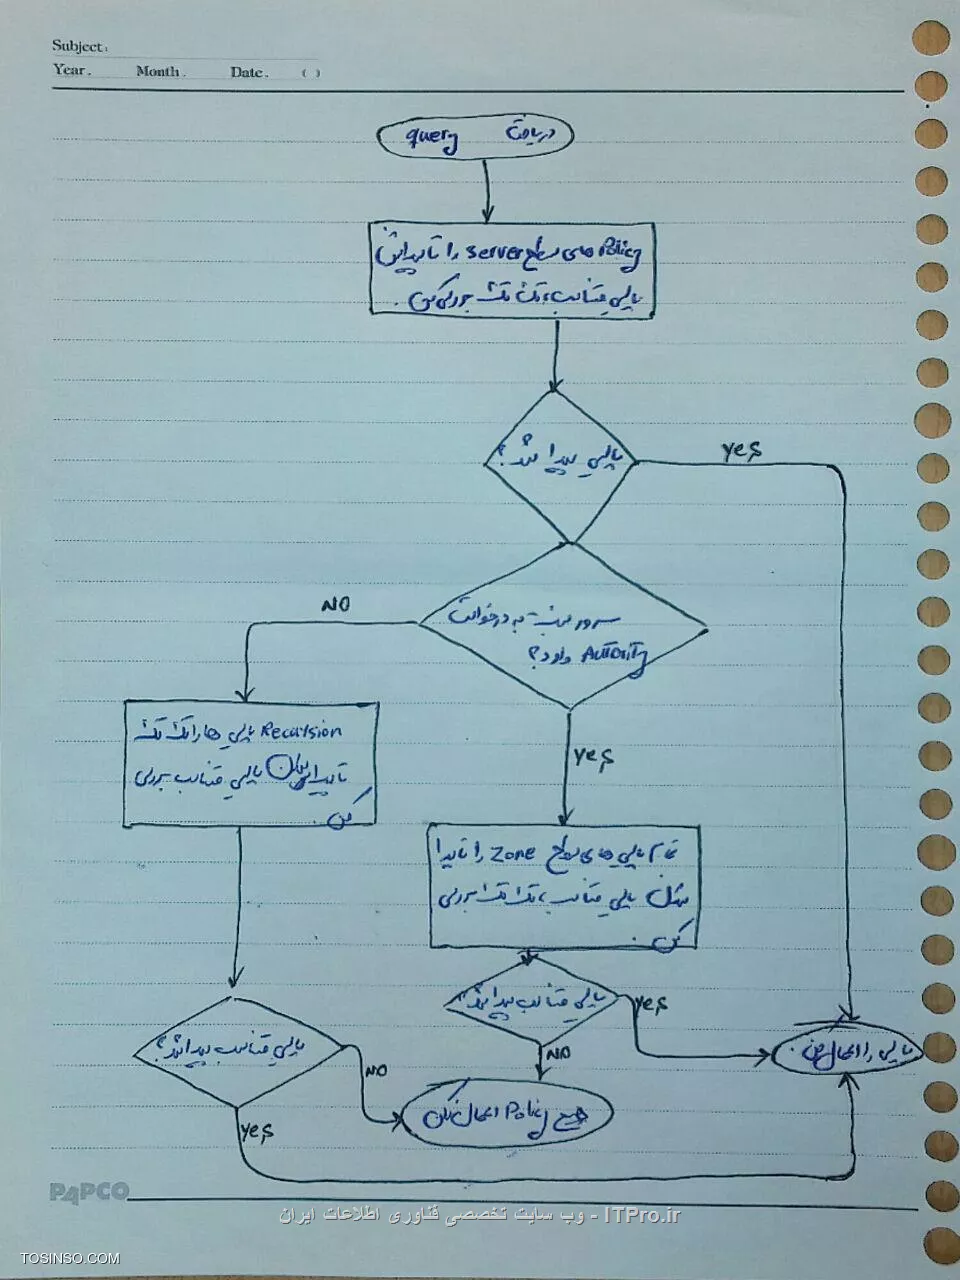 Subject:
Year. Month. Date. ( )
دریافت query
Policy های سطح server را تا پیدا شدن
پالسی متناسب، تک تک بررسی کن.
پالسی پیدا شد؟
yes
سرور نسبت به درخواست
Autority دارد؟
NO
yes
Recursion پالسی ها را تک تک
تا پیدا شدن پالسی متناسب بررسی
کن.
تمام پالسی های سطح Zone را تا پیدا
شدن پالسی متناسب، تک تک بررسی
کن.
پالسی متناسب پیدا شد؟
yes
NO
پالسی متناسب پیدا شد؟
NO
yes
پالسی را اعمال کن.
هیچ Policy اعمال نکن
PAPCO
ITPro.ir - وب سایت تخصصی فناوری اطلاعات ایران
TOSINSO.COM